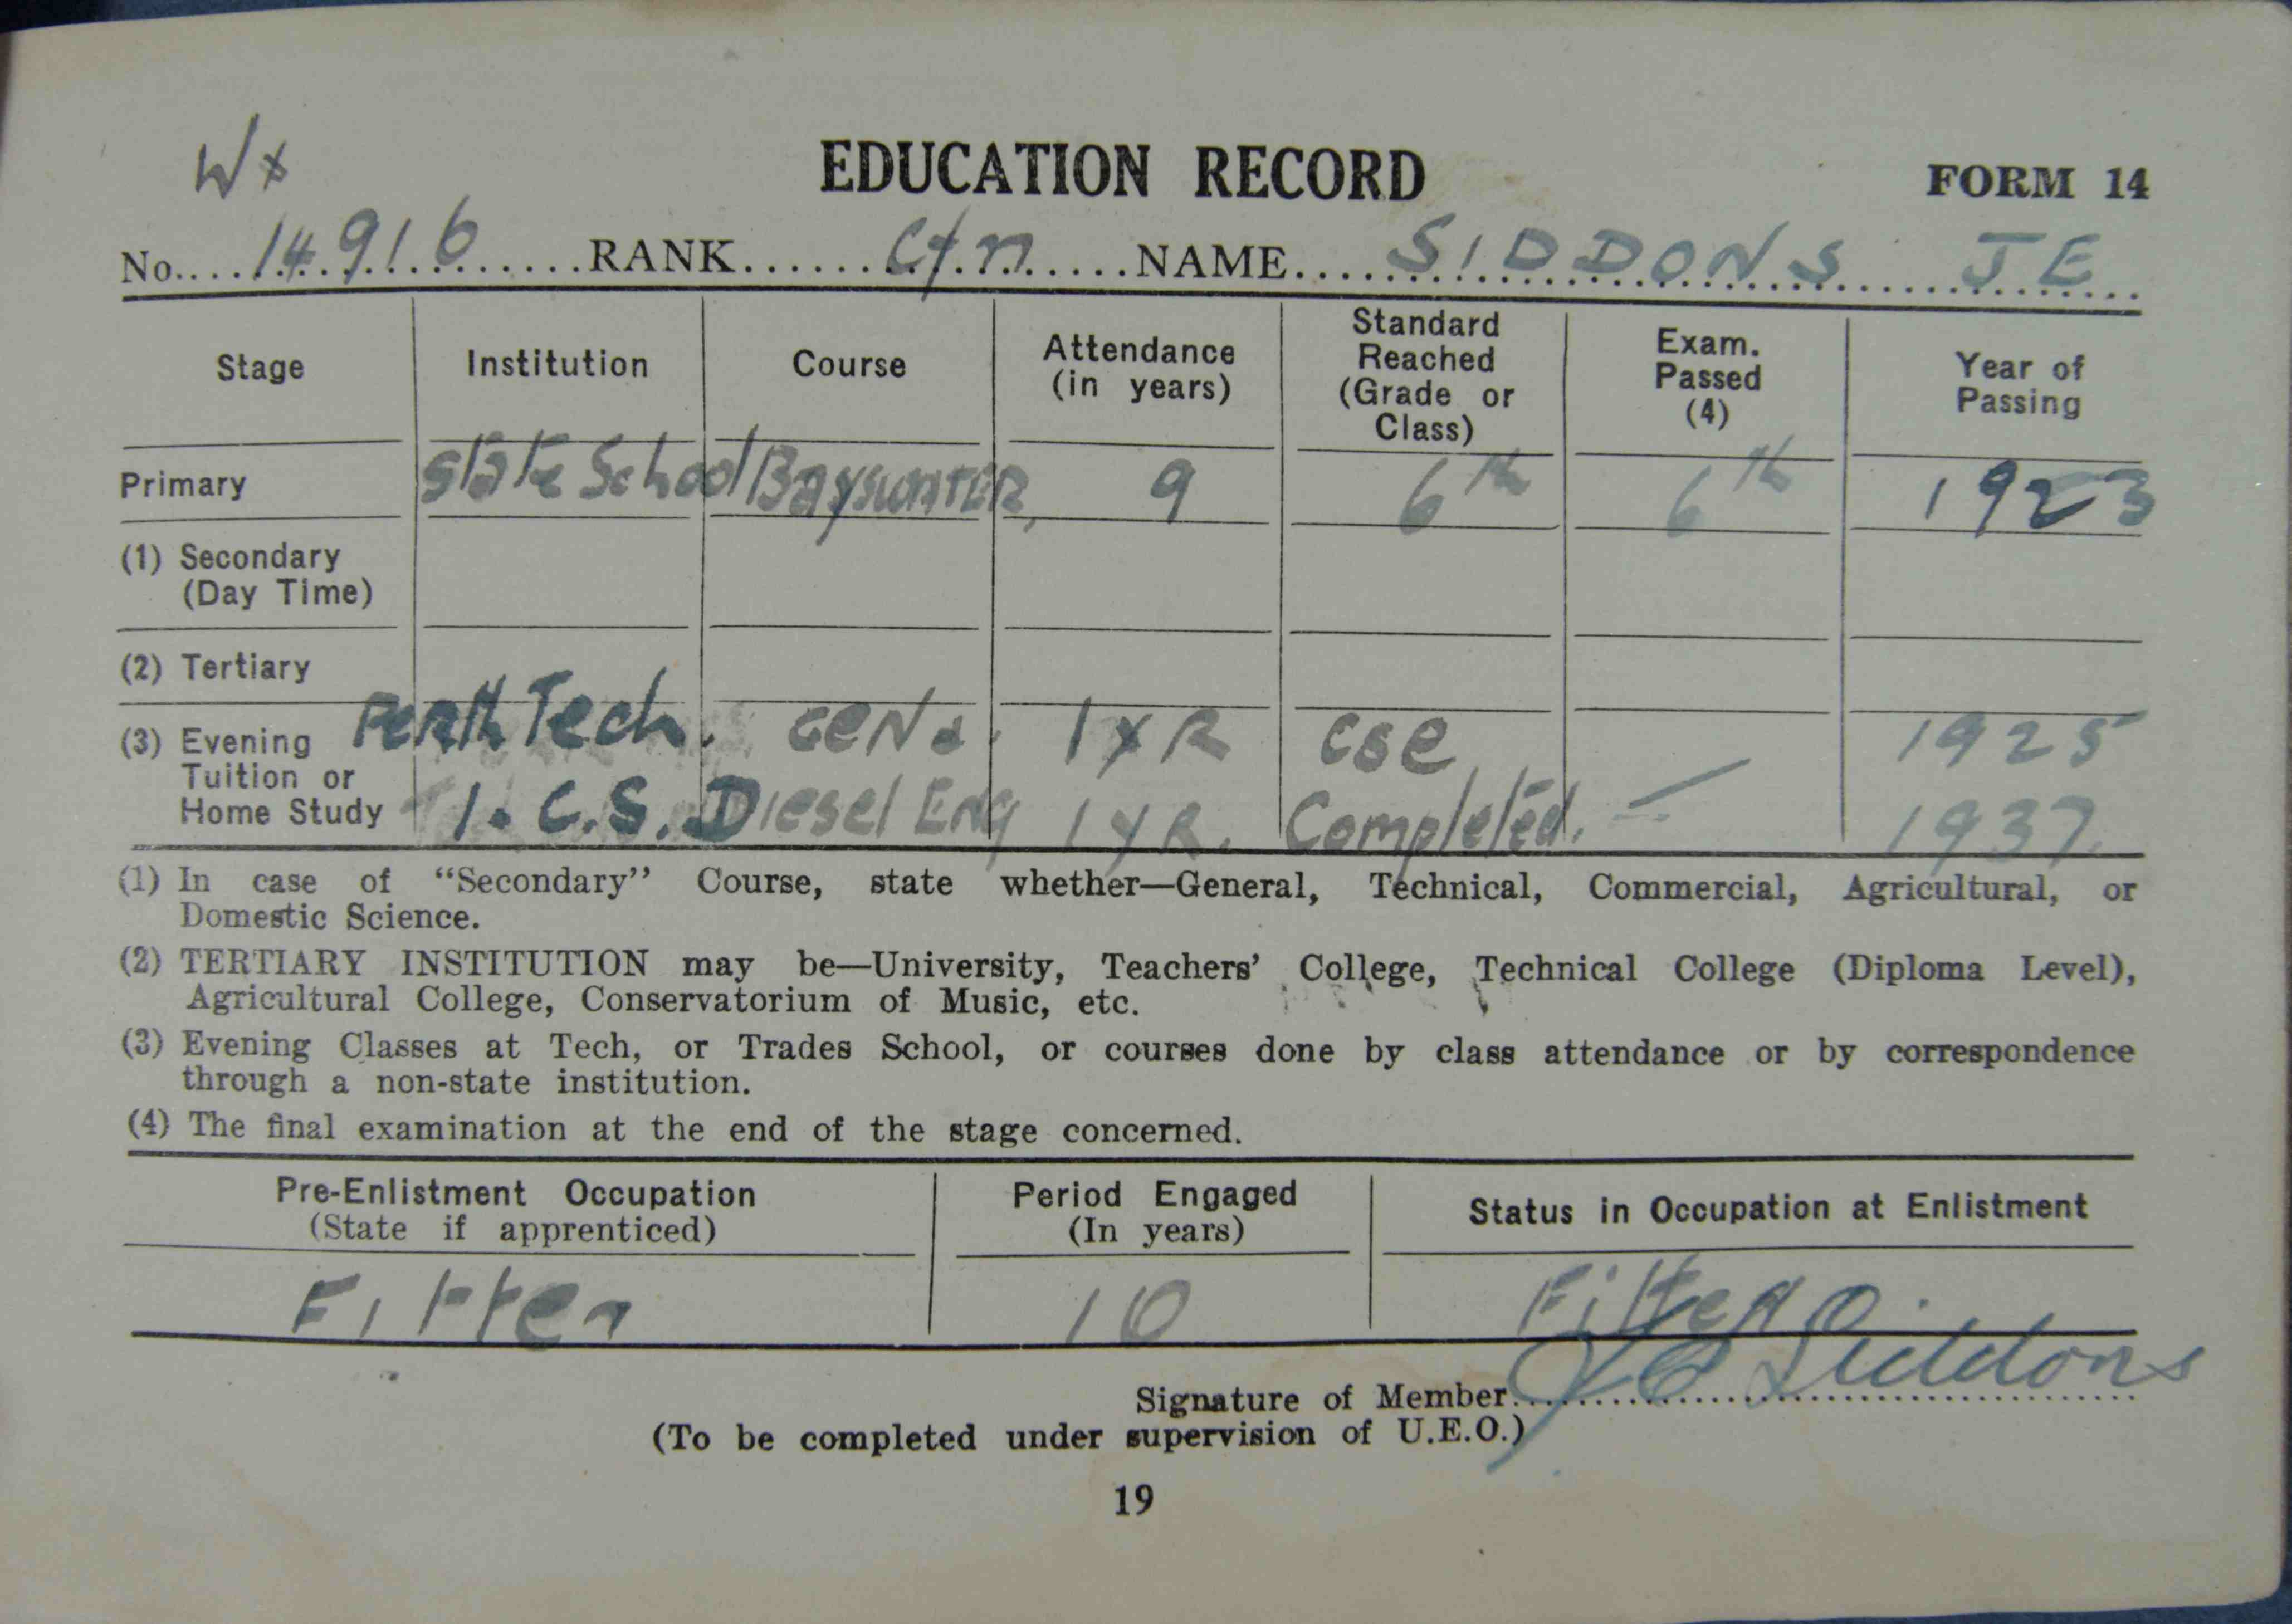 Wx
EDUCATION RECORD
FORM 14
No. 14916 RANK Cfn NAME SIDDONS JE
Stage Institution Course Attendance (in years) Standard Reached (Grade or Class) Exam. Passed (4) Year of Passing
Primary State School Bayswater, 9 6th 6th 1923
(1) Secondary
(Day Time)
(2) Tertiary
(3) Evening Perth Tech. GEN. 1 YR CSE 1925
Tuition or
Home Study I.C.S. Diesel Eng 1 YR. Completed. — 1937.
(1) In case of “Secondary” Course, state whether—General, Technical, Commercial, Agricultural, or
Domestic Science.
(2) TERTIARY INSTITUTION may be—University, Teachers’ College, Technical College (Diploma Level),
Agricultural College, Conservatorium of Music, etc.
(3) Evening Classes at Tech, or Trades School, or courses done by class attendance or by correspondence
through a non-state institution.
(4) The final examination at the end of the stage concerned.
Pre-Enlistment Occupation Period Engaged Status in Occupation at Enlistment
(State if apprenticed) (In years)
Fitter 10 Fitter
Signature of Member J E Siddons
(To be completed under supervision of U.E.O.)
19